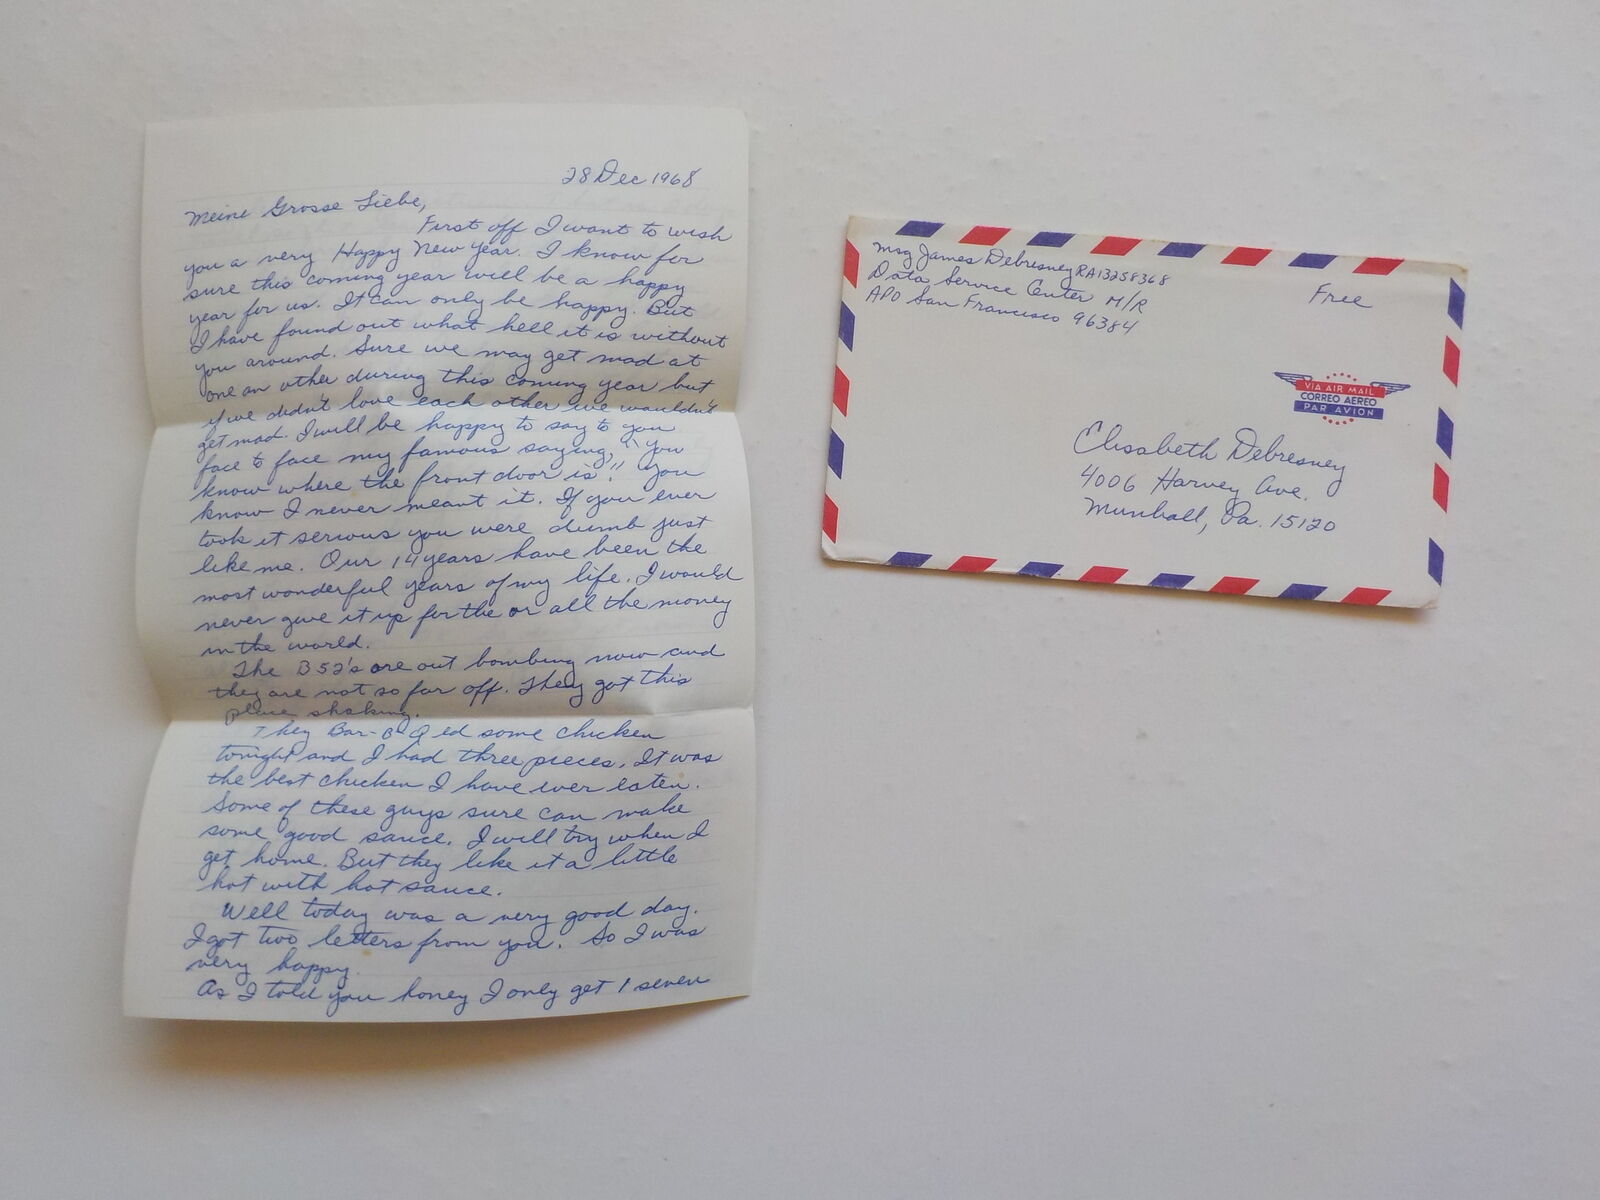 28 Dec 1968
Meine Grosse Liebe,
First off I want to wish
you a very Happy New Year. I know for
sure this coming year will be a happy
year for us. It can only be happy. But
I have found out what hell it is without
you around. Sure we may get mad at
one an other during this coming year but
if we didn't love each other we wouldn't
get mad. I will be happy to say to you
face to face my famous saying, "You
know where the front door is". You
know I never meant it. If you ever
took it serious you were dumb just
like me. Our 14 years have been the
most wonderful years of my life. I would
never give it up for the or all the money
in the world.
The B52's are out bombing now and
they are not so far off. They got this
place shaking.
They Bar-B-Q ed some chicken
tonight and I had three pieces. It was
the best chicken I have ever eaten.
Some of these guys sure can make
some good sauce. I will try when I
get home. But they like it a little
hot with hot sauce.
Well today was a very good day.
I got two letters from you. So I was
very happy.
As I told you honey I only get 1 seven
Msg James Debresney RA13258368
Data Service Center M/R
APO San Francisco 96384
Free
VIA AIR MAIL
CORREO AEREO
PAR AVION
Elisabeth Debresney
4006 Harvey Ave.
Munhall, Pa. 15120